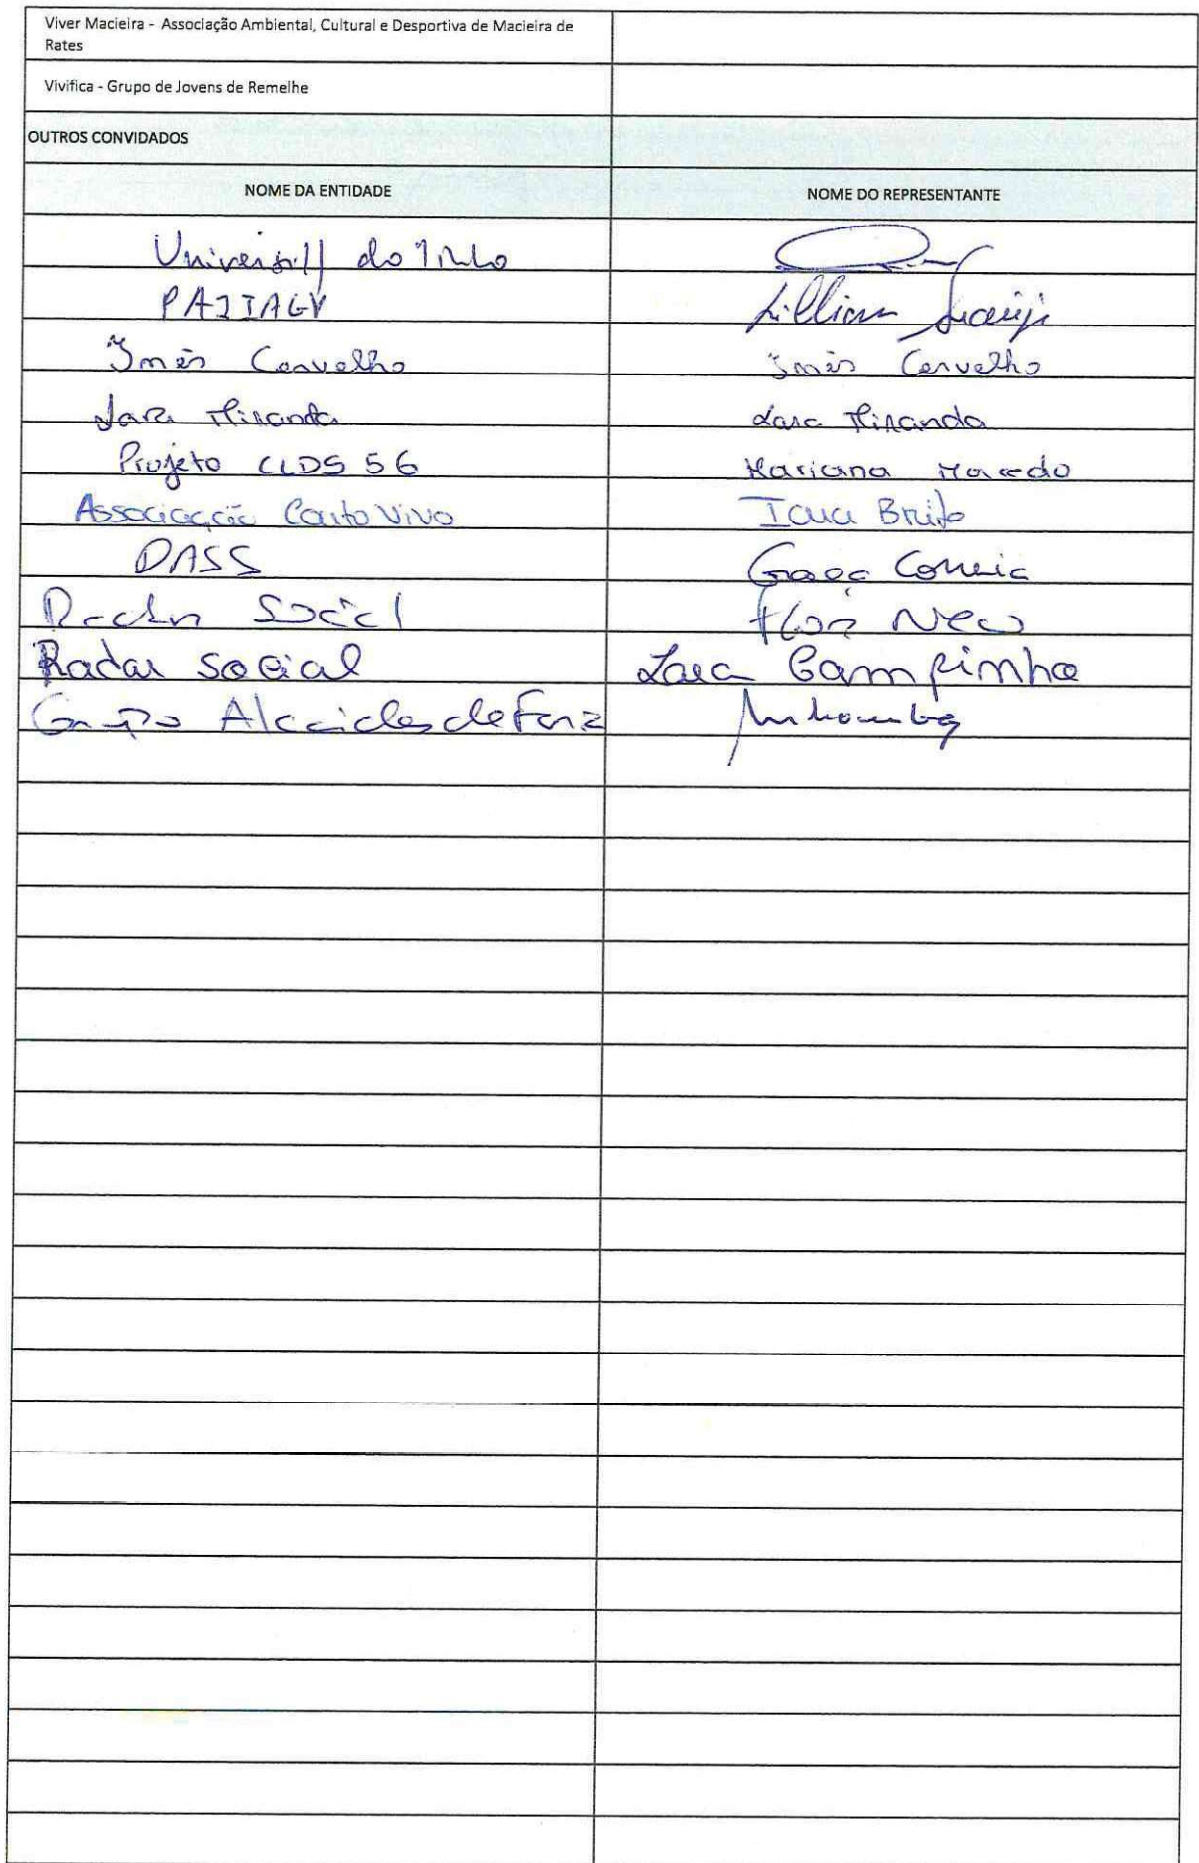 Viver Macieira - Associação Ambiental, Cultural e Desportiva de Macieira de
Rates
Vivifica - Grupo de Jovens de Remelhe
OUTROS CONVIDADOS
NOME DA ENTIDADE NOME DO REPRESENTANTE
do Minho
Lillian Araújo
Inês Carvalho Inês Carvalho
Lara Miranda Lara Miranda
Projeto CLDS 5G Mariana Macedo
Associação Brito
DASS Graça Correia
Radar Social Flora Neu
Radar Social Lara Campinho
Grupo Alcaides de Faria